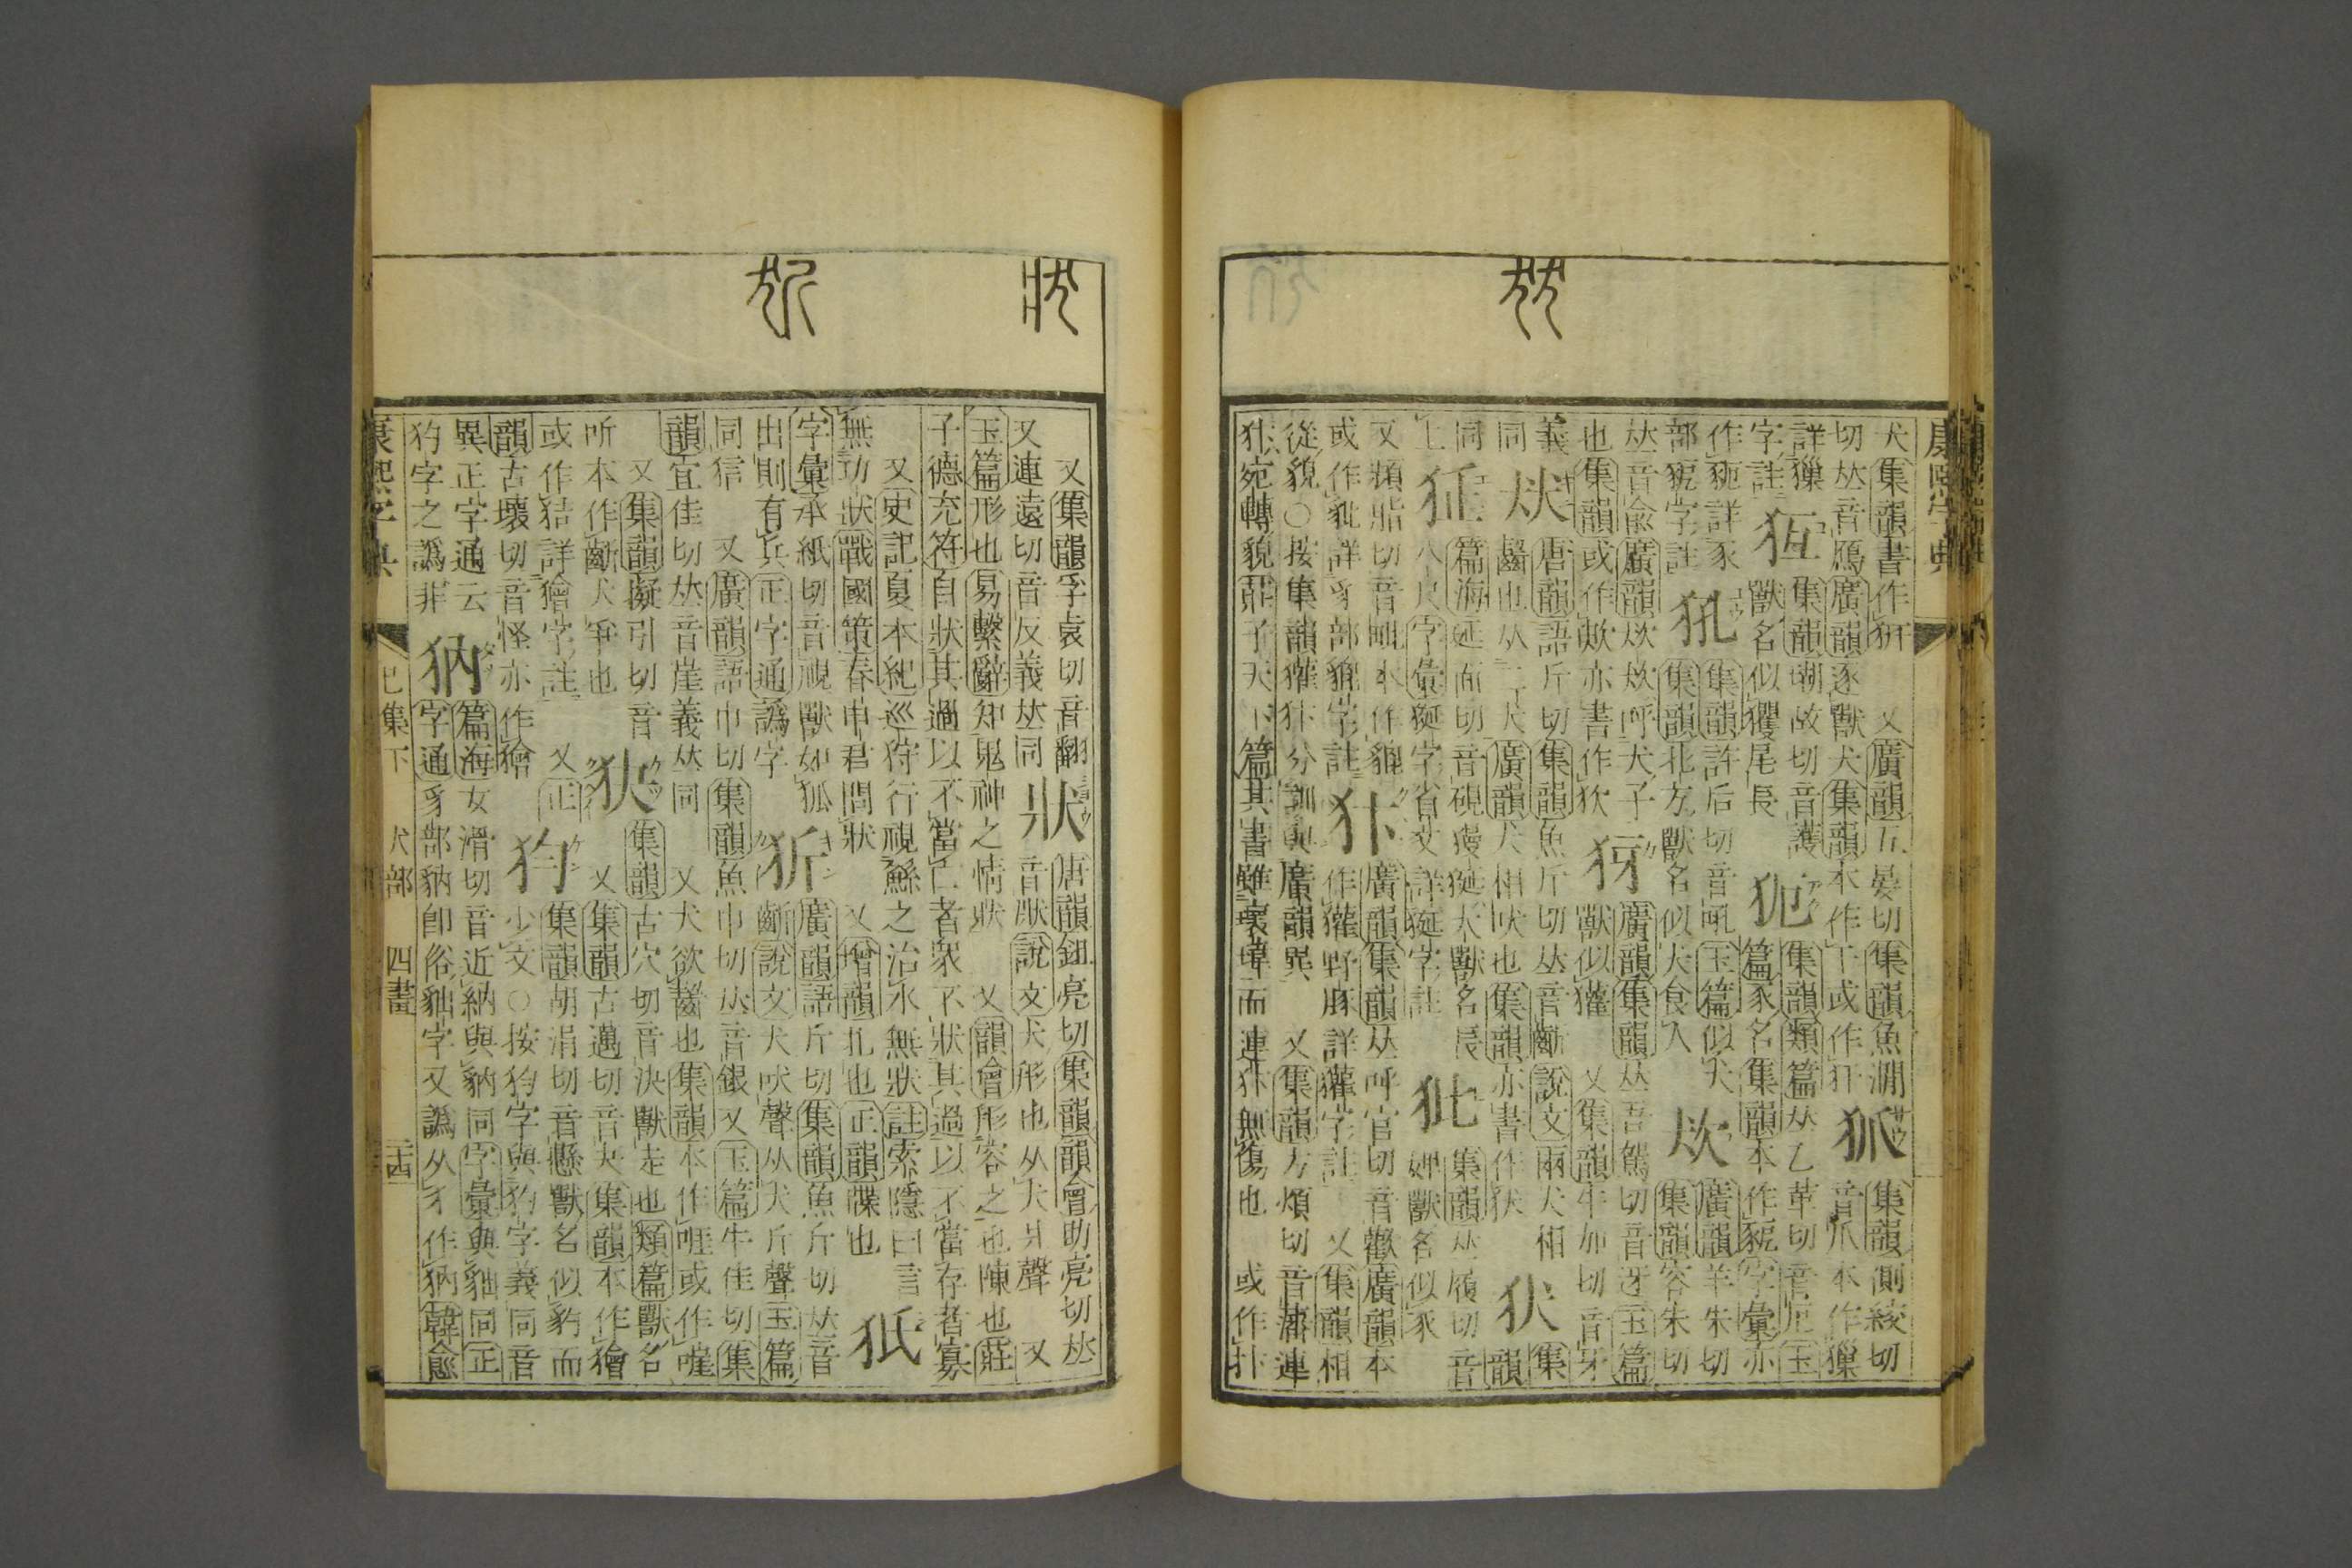 康熙字典
犬集韻書作犴 又廣韻五晏切集韻魚澗
切𠀤音鴈廣韻逐獸犬集韻本作干或作犴
集韻側絞切
音爪本作獵
詳獵
字註
集韻胡故切音護
獸名似玃尾長
集韻類篇𠀤乙革切音厄玉
篇豕名集韻本作豟字彙亦
作豟詳豕
部豟字註
犼
集韻許后切音吼玉篇似犬
集韻北方獸名似犬食人
廣韻羊朱切
集韻容朱切
𠀤音俞廣韻㰲㰲呼犬子
也集韻或作㰲亦書作㹤
犽
廣韻集韻𠀤吾駕切音迓玉篇
獸似獾 又集韻牛加切音牙
義
同
㹜
唐韻語斤切集韻魚斤切𠀤音齗說文兩犬相
齧也从二犬廣韻犬相吠也集韻亦書作犾
犾
集
韻
同
上
篇海延面切音硯獌狿大獸名長
八尺字彙狿字省文詳狿字註
集韻𠀤履切音
妣獸名似豕
又頻脂切音毗本作貔
或作豼詳豸部貔字註
犿
廣韻集韻𠀤呼官切音歡廣韻本
作獾野豚詳獾字註 又集韻相
從貌○按集韻獾犿分訓與廣韻異 又集韻方煩切音藩連
犿宛轉貌莊子天下篇其書雖瓌瑋而連犿無傷也 或作抃
又集韻孚袁切音翻
又連遠切音反義𠀤同
狀
唐韻鉏亮切集韻韻會助亮切𠀤
音𤕯說文犬形也从犬爿聲 又
玉篇形也易繫辭知鬼神之情狀 又韻會形容之也陳也莊
子德充符自狀其過以不當亡者衆不狀其過以不當存者寡
又史記夏本紀巡狩行視鯀之治水無狀註索隱曰言
無功狀戰國策春申君問狀 又增韻札也正韻牒也
字彙承紙切音視獸如狐
出則有兵正字通譌字
㹞
廣韻語斤切集韻魚斤切𠀤音
齗說文犬吠聲从犬斤聲玉篇
同㹞 又廣韻語巾切集韻魚巾切𠀤音銀 又玉篇牛佳切集
韻宜佳切𠀤音崖義𠀤同 又犬欲齧也集韻本作啀或作嘊
又集韻擬引切音
听本作齗犬爭也
集韻古穴切音決獸走也類篇獸名
又集韻古邁切音夬集韻本作獪
或作狤詳獪字註 又正
韻古壞切音怪亦作獪
集韻胡涓切音懸獸名似豹而
少文○按犳字與犳字義同音
異正字通云
犳字之譌非
篇海女滑切音近納與豽同字彙與貀同正
字通豸部豽卽俗貀字又譌从犭作㹪韓愈
康熙字典 巳集下 犬部 四畫 二十四